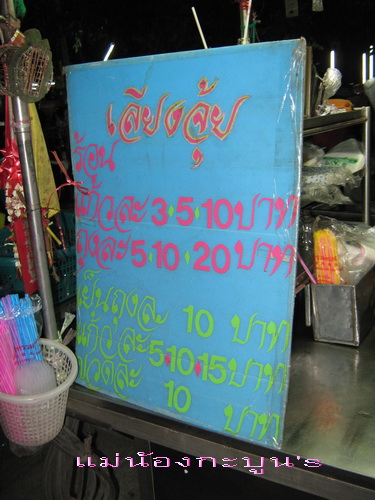 เลียงจุ้ย
ร้อน
แก้วละ 3·5·10 บาท
ถุงละ 5·10·20 บาท
เย็นถุงละ 10 บาท
แก้วละ 5·10·15 บาท
ขวดละ 10 บาท
แม่น้องกะบูน's